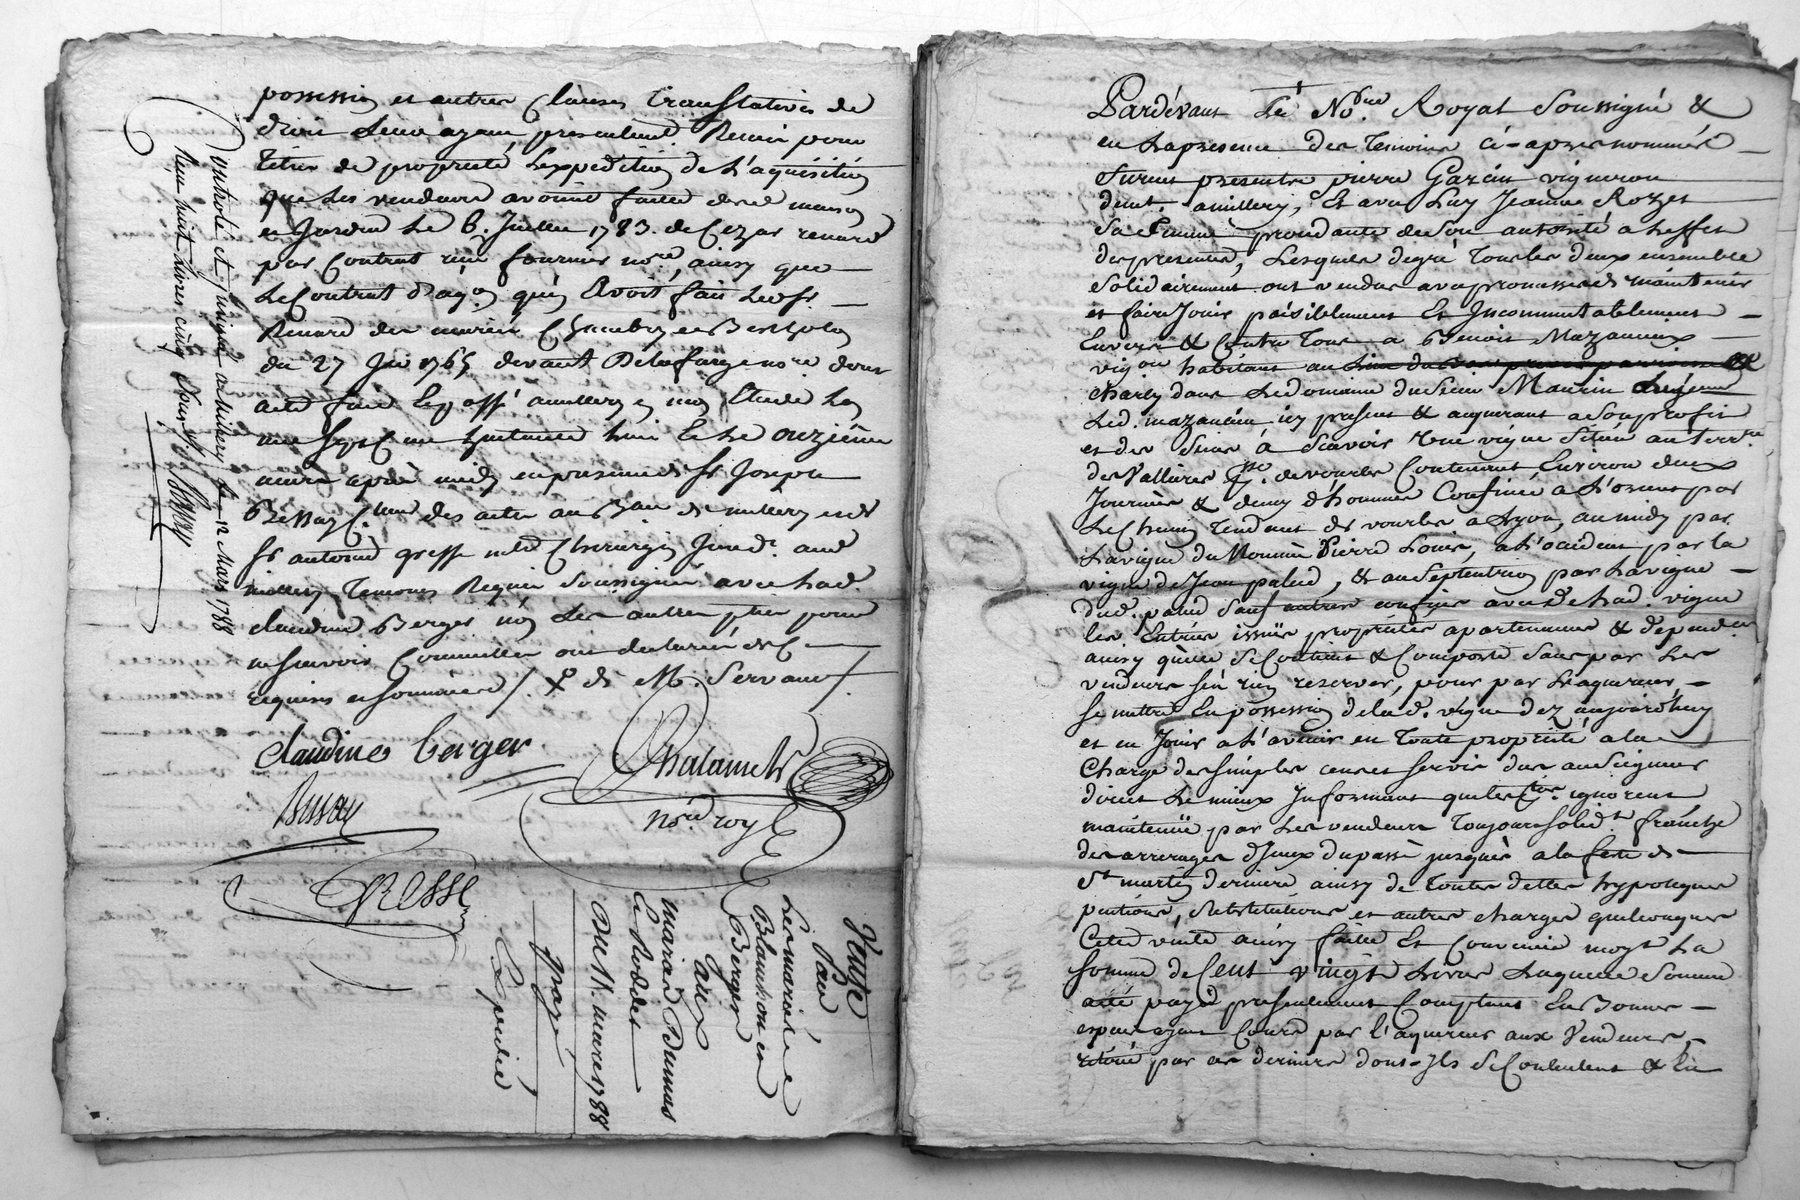 possession et autres Clauses translatives de
droit Leur ayant presentement Remis pour
titre de propriété L'expedition de L'aquisition
que Les vendeurs avoient faitte de la d. maison
et Jardin Le 6. Juillet 1783. de Cezar renard
par Contrat reçu fournier no.re ainsy que
Le Contrat d'aq.on qu'en avoit fait Led. Sr.
Renard des mariés Chambry et Berthelon
du 27 Jui 1765 devant Delafarge no.re dont
acte fait Et passé a millery en mon Etude L'an
mil Sept cent quatre vingt huit Et Le onzieme
mars après midy en presence de Sr. Joseph
Bissay C. des actes au Bau de millery et de
Sr antoine gresse m.e Chirurgien Jured. aud.
millery Temoins Requis Soussignés avec Lad.
claudine Berger non Les autres p.ties pour
ne Scavoir Comme elles ont declaré de Ce
requises et Sommées /. de M. Servant /.
claudine berger
Chalamel
Bissay
no.re royl
GRESSE
Controlé et Insinué a millery Le 12 Mars 1788
Reçu huit Livres cinq Sous
Vente
Par
Les mariés
Blanchon et
Berger
aux
mariés Dumas
et
Du 11. mars 1788
payé
Expedié
Pardevant Le No.re Royal Soussigné &
en La presence des Temoins ci-apres nommés
Furent presents pierre Garein vigneron
demt. a millery, Et avec Luy Jeanne Rozet
Sa Femme procédante de Son autorité a L'effet
des presentes, Lesquels de gré Tous Les deux ensemble
Solidairement ont vendu avec promesse de maintenir
et faire Jouir paisiblement Et Incommutablement
Envers & Contre Tous a Benoit Mazancieux
vig.on habitant au
charly dans Le domaine du Sieur Maurin
Led. mazancieu icy present & aquerant a Son profit
et des Siens à Scavoir Une vigne Située au terr.re
des Vallieres P.sse de vourles Contenant Environ deux
Journées & demy d'hommes Confinée a L'orient par
Le Chemin Tendant de vourles a Lyon, au midy par
La vigne du Nommé Pierre Louis, a L'occident par la
vigne de Jean palud, & au Septentrion par La vigne
dud. palud Sauf autres confins avec de Lad. vigne
les Entrées issües proprietés apartenances & dependces
ainsy qu'elle Se Contient & Comporte Sans par Les
vendeurs s'en rien reserver, pour par L'aquereur
Se mettre En possession de lad. vigne dez aujourd'huy
et en Jouir a L'avenir en toute propriété a la
Charge des Simples cens et servis dus au Seigneur
direct Le mieux Informant que Les p.ties ignorent
maintenüe par Les vendeurs Toujours Solid.t franche
des arrerages d'Iceux du passé jusques a la fete de
St martin derniere ainsy de Toutes dettes hypoteques
pentions, Substitutions et autres charges quelconques
Cette vente ainsy faitte Et Convenüe moyt La
Somme de Cent Vingt Livres Laquelle Somme
a été payée presentement Comptant En Bonnes
especes ayant Cours par l'aquereur aux Vendeurs,
retirée par ces derniers dont-Ils Se Contentent & En